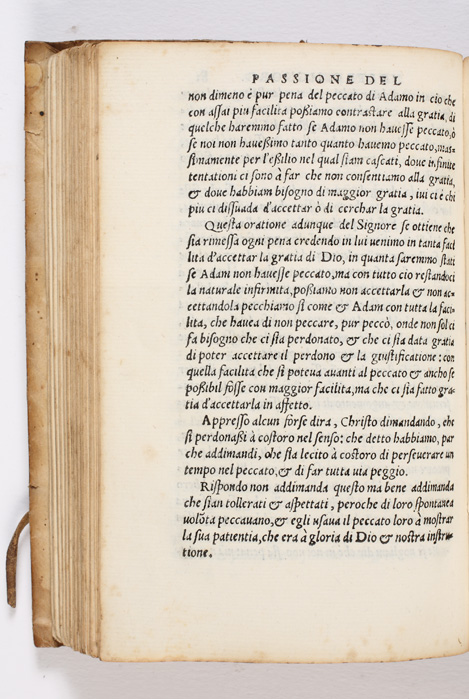 PASSIONE DEL
non dimeno è pur pena del peccato di Adamo in cio che
con aſſai piu facilita poßiamo contraſtare alla gratia, di
quelche haremmo fatto ſe Adamo non haueſſe peccato, ò
ſe noi non haueßimo tanto quanto hauemo peccato, maſ-
ſimamente per l'eſsilio nel qual ſiam caſcati, doue infinite
tentationi ci ſono à far che non conſentiamo alla gratia,
& doue habbiam biſogno di maggior gratia, iui ci è chi
piu ci diſſuada d'accettar ò di cerchar la gratia.
Queſta oratione adunque del Signore ſe ottiene che
ſia rimeſſa ogni pena credendo in lui uenimo in tanta faci
lita d'accettar la gratia di Dio, in quanta ſaremmo ſtati
ſe Adam non haueſſe peccato, ma con tutto cio reſtandoci
la naturale infirmita, poßiamo non accettarla & non ac-
cettandola pecchiamo ſi come & Adam con tutta la faci-
lita, che hauea di non peccare, pur peccò, onde non ſol ci
fa biſogno che ci ſia perdonato, & che ci ſia data gratia
di poter accettare il perdono & la giuſtificatione: con
quella facilita che ſi poteua auanti al peccato & ancho ſe
poßibil foſſe con maggior facilita, ma che ci ſia fatto gra-
tia d'accettarla in affetto.
Appreſſo alcun forſe dira, Chriſto dimandando, che
ſi perdonaßi à coſtoro nel ſenſo: che detto habbiamo, par
che addimandi, che ſia lecito à coſtoro di perſeuerare un
tempo nel peccato, & di far tutta uia peggio.
Riſpondo non addimanda queſto ma bene addimanda
che ſian tollerati & aſpettati, peroche di loro ſpontanea
uolõta peccauano, & egli uſaua il peccato loro à moſtrar
la ſua patientia, che era à gloria di Dio & noſtra inſtru-
tione.